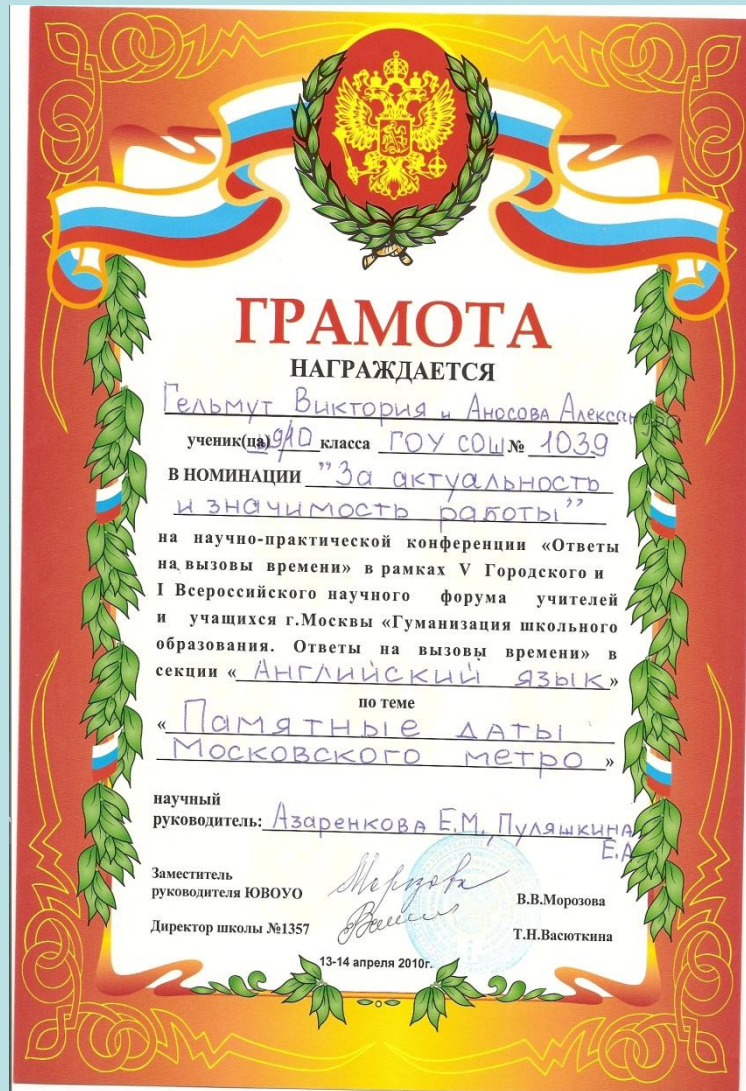 ГРАМОТА
НАГРАЖДАЕТСЯ
Гельмут Виктория и Аносова Александра
ученик(ца) 9/10 класса ГОУ СОШ № 1039
В НОМИНАЦИИ "За актуальность
и значимость работы"
на научно-практической конференции «Ответы
на вызовы времени» в рамках V Городского и
I Всероссийского научного форума учителей
и учащихся г.Москвы «Гуманизация школьного
образования. Ответы на вызовы времени» в
секции « Английский язык»
по теме
« Памятные даты
Московского метро »
научный
руководитель: Азаренкова Е.М, Пуляшкина
Е.А
Заместитель
руководителя ЮВОУО Морозова В.В.Морозова
Директор школы №1357 Т.Н.Васюткина
13-14 апреля 2010г.